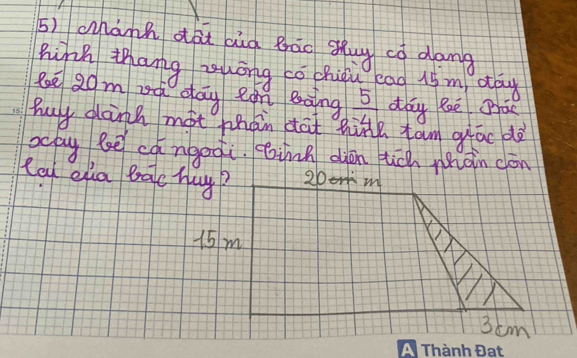 5) Mảnh đất của bác Huy có dạng
hình thang vuông có chiều cao 15 m, đáy
bé 20 m và đáy lớn bằng 5/4 đáy bé. Bác
huy dành một phần đất hình tam giác để
xây bể cá ngoài. Tính diện tích phần còn
lại của bác huy?
20 m
15 m
3 cm
A Thành Đạt